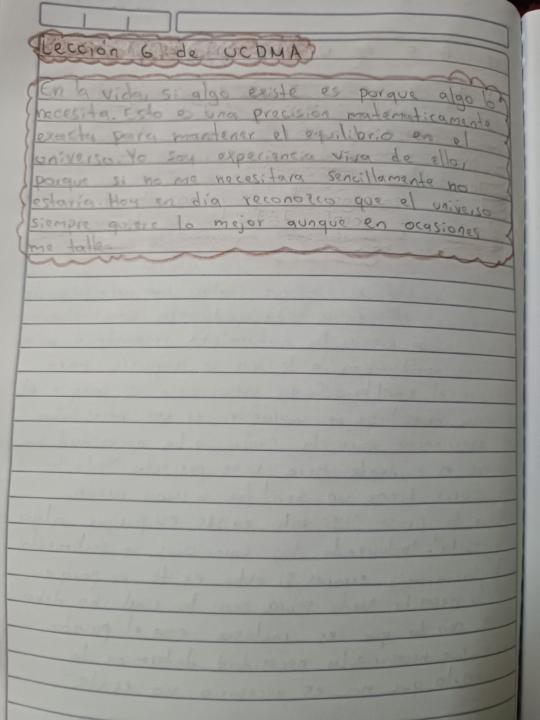 Lección 6 de UCDMA
En la vida, si algo existe es porque algo lo
necesita. Esto es una precisión matemáticamente
exacta para mantener el equilibrio en el
universo. Yo soy experiencia viva de ello,
porque si no me necesitara sencillamente no
estaría. Hoy en día reconozco que el universo
siempre quiere lo mejor aunque en ocasiones
me talle.